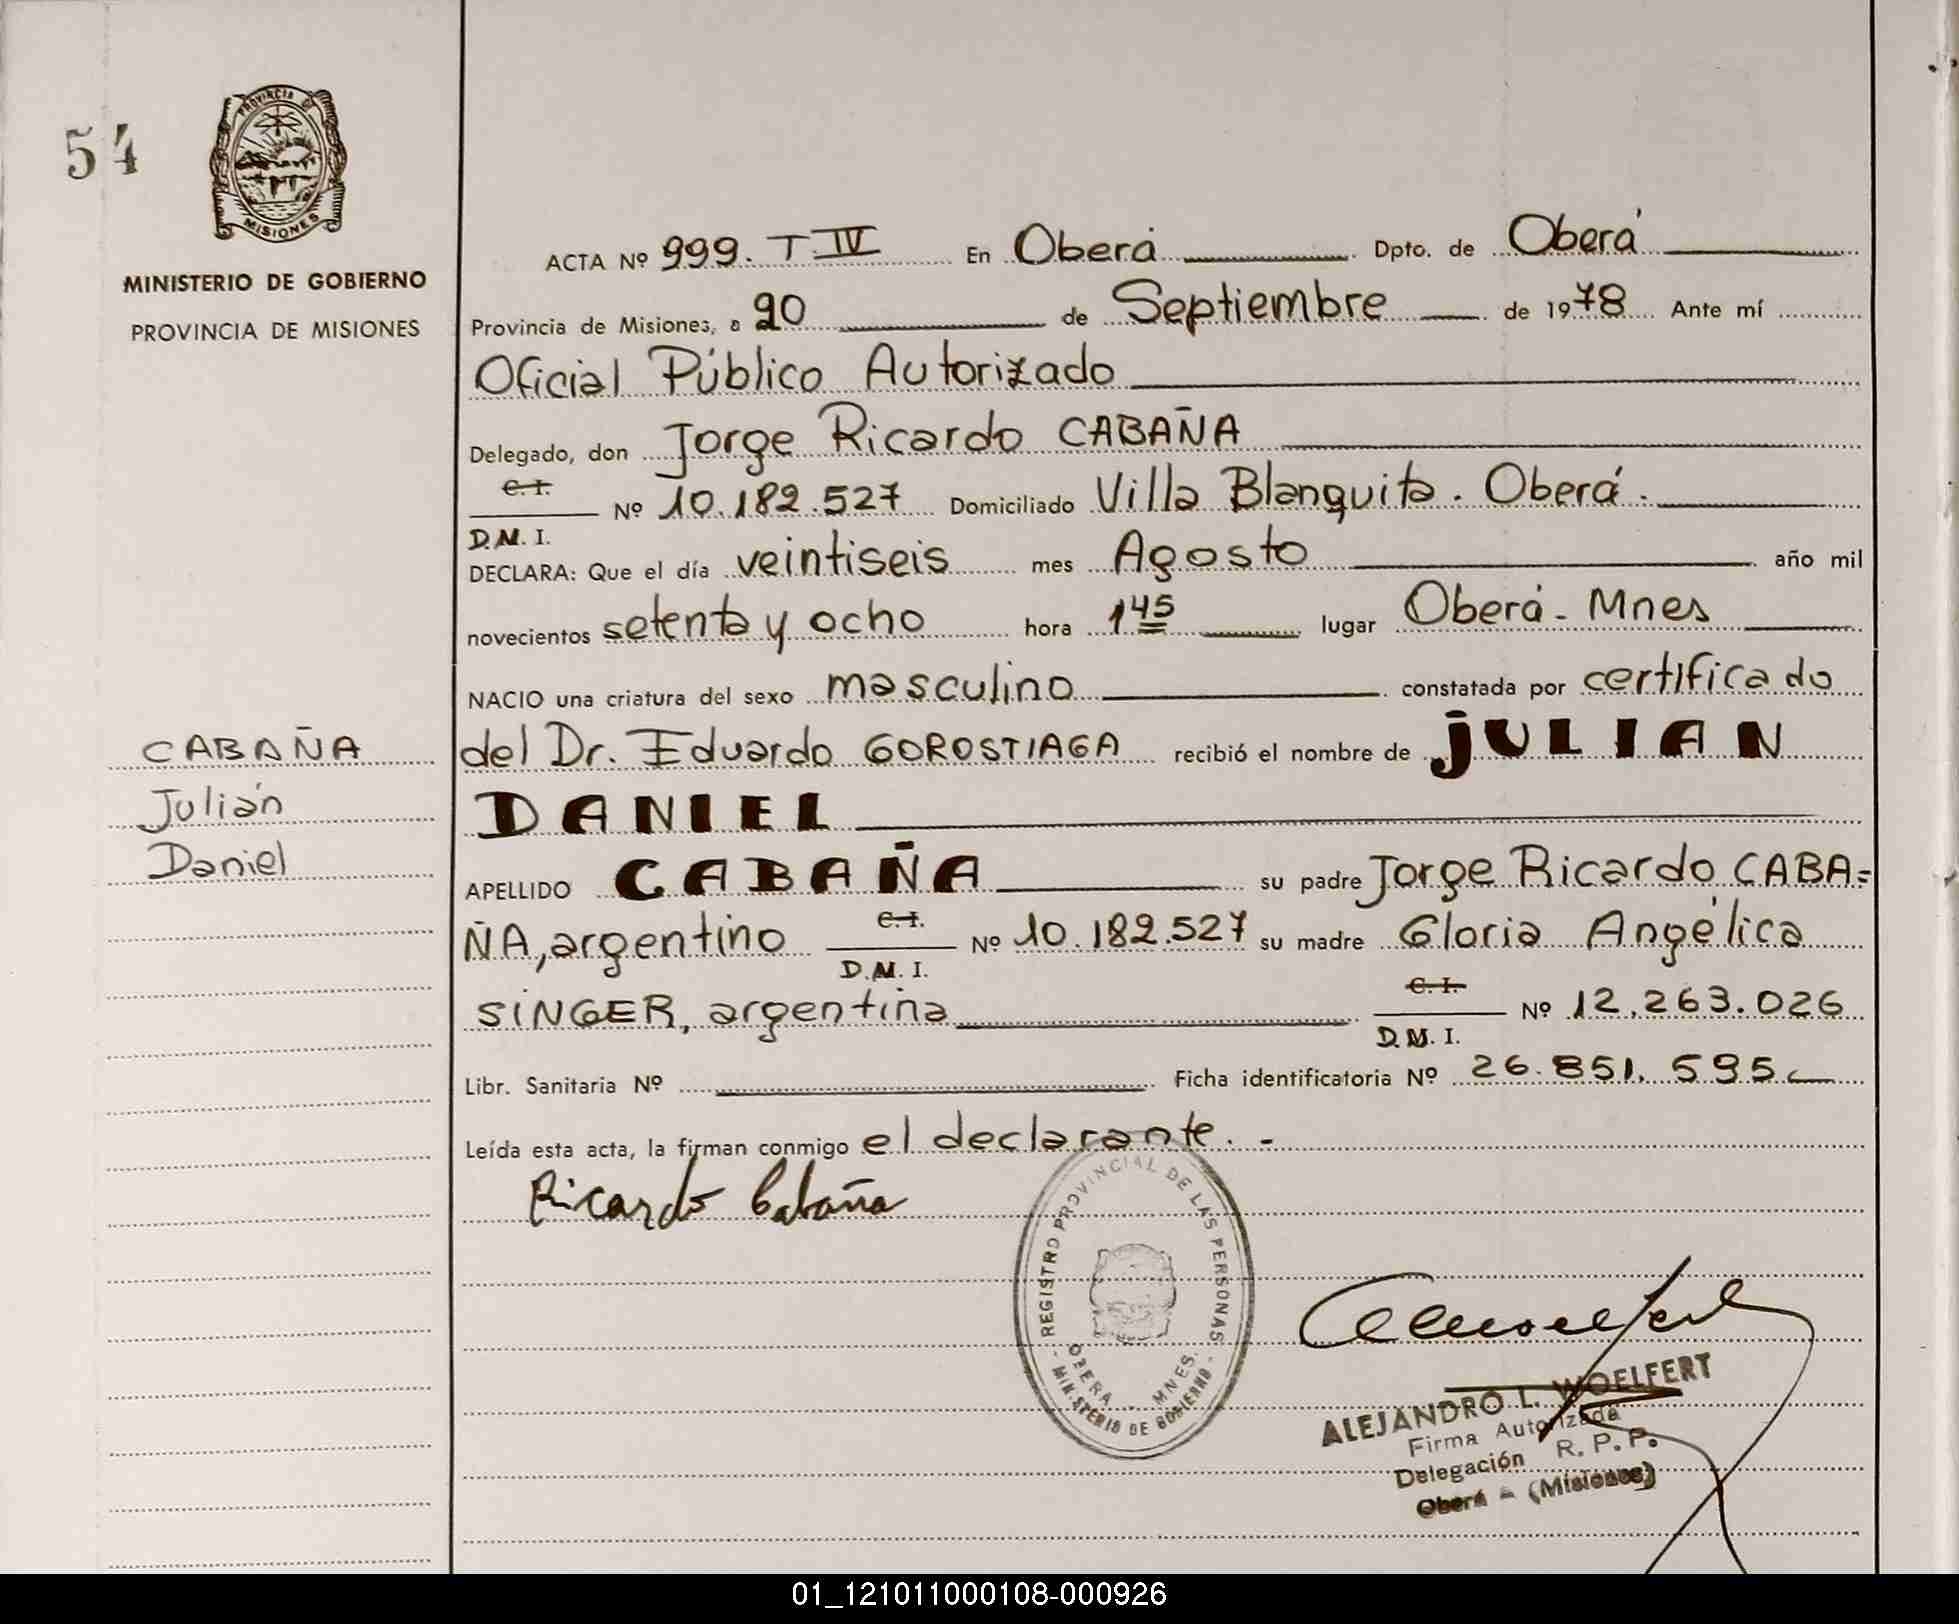 54
PROVINCIA DE
MISIONES
MINISTERIO DE GOBIERNO
PROVINCIA DE MISIONES
ACTA Nº 999. T. IV En Oberá Dpto. de Oberá
Provincia de Misiones, a 20 de Septiembre de 1978 Ante mí
Oficial Público Autorizado
Delegado, don Jorge Ricardo CABAÑA
C. I.
Nº 10.182.527 Domiciliado Villa Blanquita. Oberá.
D.M. I.
DECLARA: Que el día veintiseis mes Agosto año mil
novecientos setenta y ocho hora 1 45 lugar Oberá - Mnes
NACIO una criatura del sexo masculino constatada por certificado
del Dr. Eduardo GOROSTIAGA recibió el nombre de JULIAN
DANIEL
APELLIDO CABAÑA su padre Jorge Ricardo CABA=
ÑA, argentino C. I. Nº 10.182.527 su madre Gloria Angélica
D.M. I.
SINGER, argentina C. I. Nº 12.263.026
D.M. I.
Libr. Sanitaria Nº Ficha identificatoria Nº 26.851.595
Leída esta acta, la firman conmigo el declarante. -
CABAÑA
Julián
Daniel
Ricardo Cabaña
REGISTRO PROVINCIAL DE LAS PERSONAS
OBERA - MNES.
- MINISTERIO DE GOBIERNO -
ALEJANDRO L. WOELFERT
Firma Autorizada
Delegación R. P. P.
Oberá - (Misiones)
01_121011000108-000926